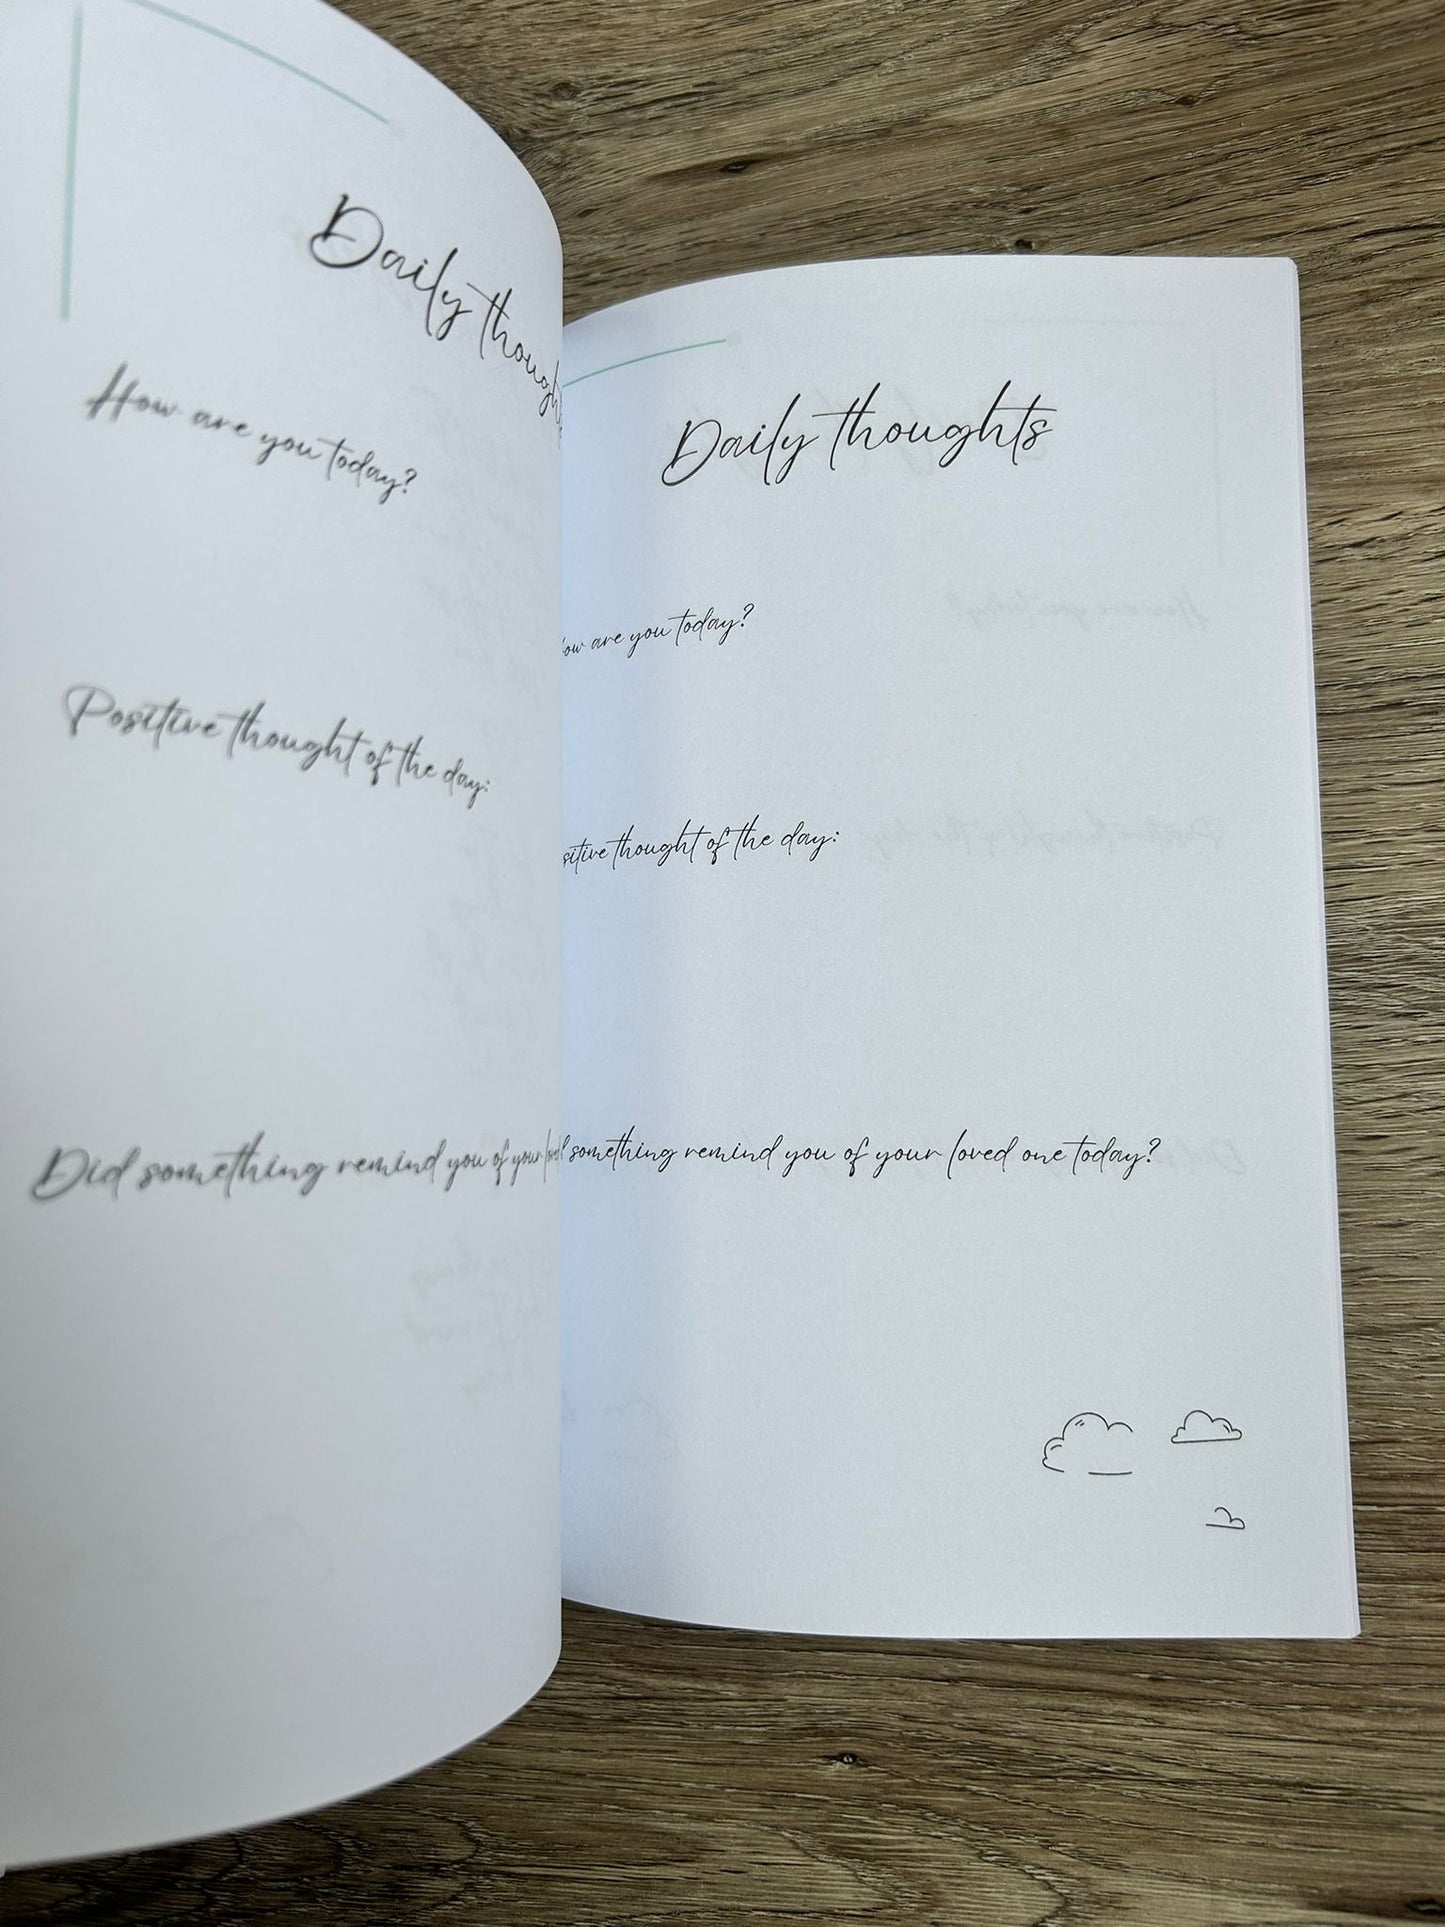 Daily thoughts
How are you today?
Positive thought of the day:
Did something remind you of your
Daily thoughts
are you today?
thought of the day:
something remind you of your loved one today?